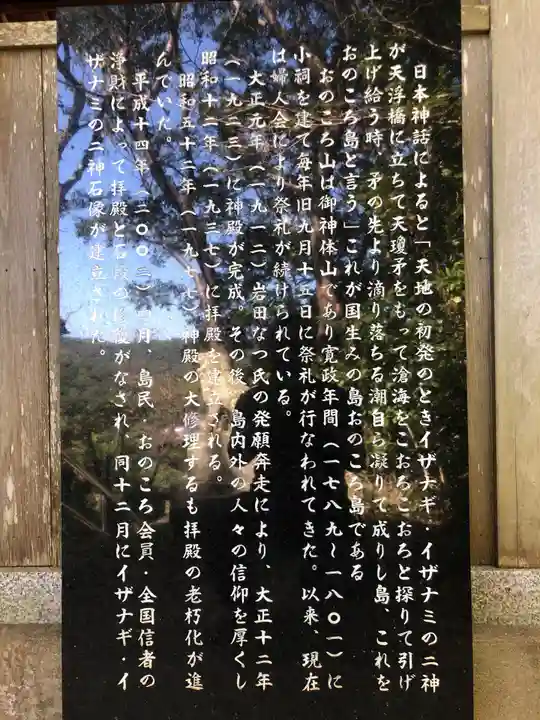 日本神話によると「天地の初発のときイザナギ・イザナミの二神
が天浮橋に立ちて天瓊矛をもって滄海をこおろこおろと探りて引げ
上げ給う時　矛の先より滴り落ちる潮自ら凝りて成りし島、これを
おのころ島と言う」これが国生みの島おのころ島である
おのころ山は御神体山であり寛政年間（一七八九〜一八〇一）に
小祠を建て毎年旧九月十五日に祭礼が行なわれてきた。以来、現在
は婦人会により祭礼が続けられている。
大正元年（一九一二）岩田なつ氏の発願奔走により、大正十二年
（一九二三）に神殿が完成。その後、島内外の人々の信仰を厚くし
昭和十二年（一九三七）に拝殿を建立される。
昭和五十二年（一九七七）神殿の大修理するも拝殿の老朽化が進
んでいた。
平成十四年（二〇〇二）四月、島民・おのころ会員・全国信者の
浄財によって拝殿と石段の修復がなされ、同十二月にイザナギ・イ
ザナミの二神石像が建立された。